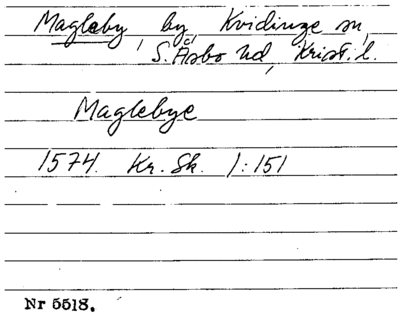 Magleby, by, Kvidinge sn,
S. Åsbo hd, Krist. l.
Maglebye
1574. Kr. Sk. 1:151
Nr 5518.